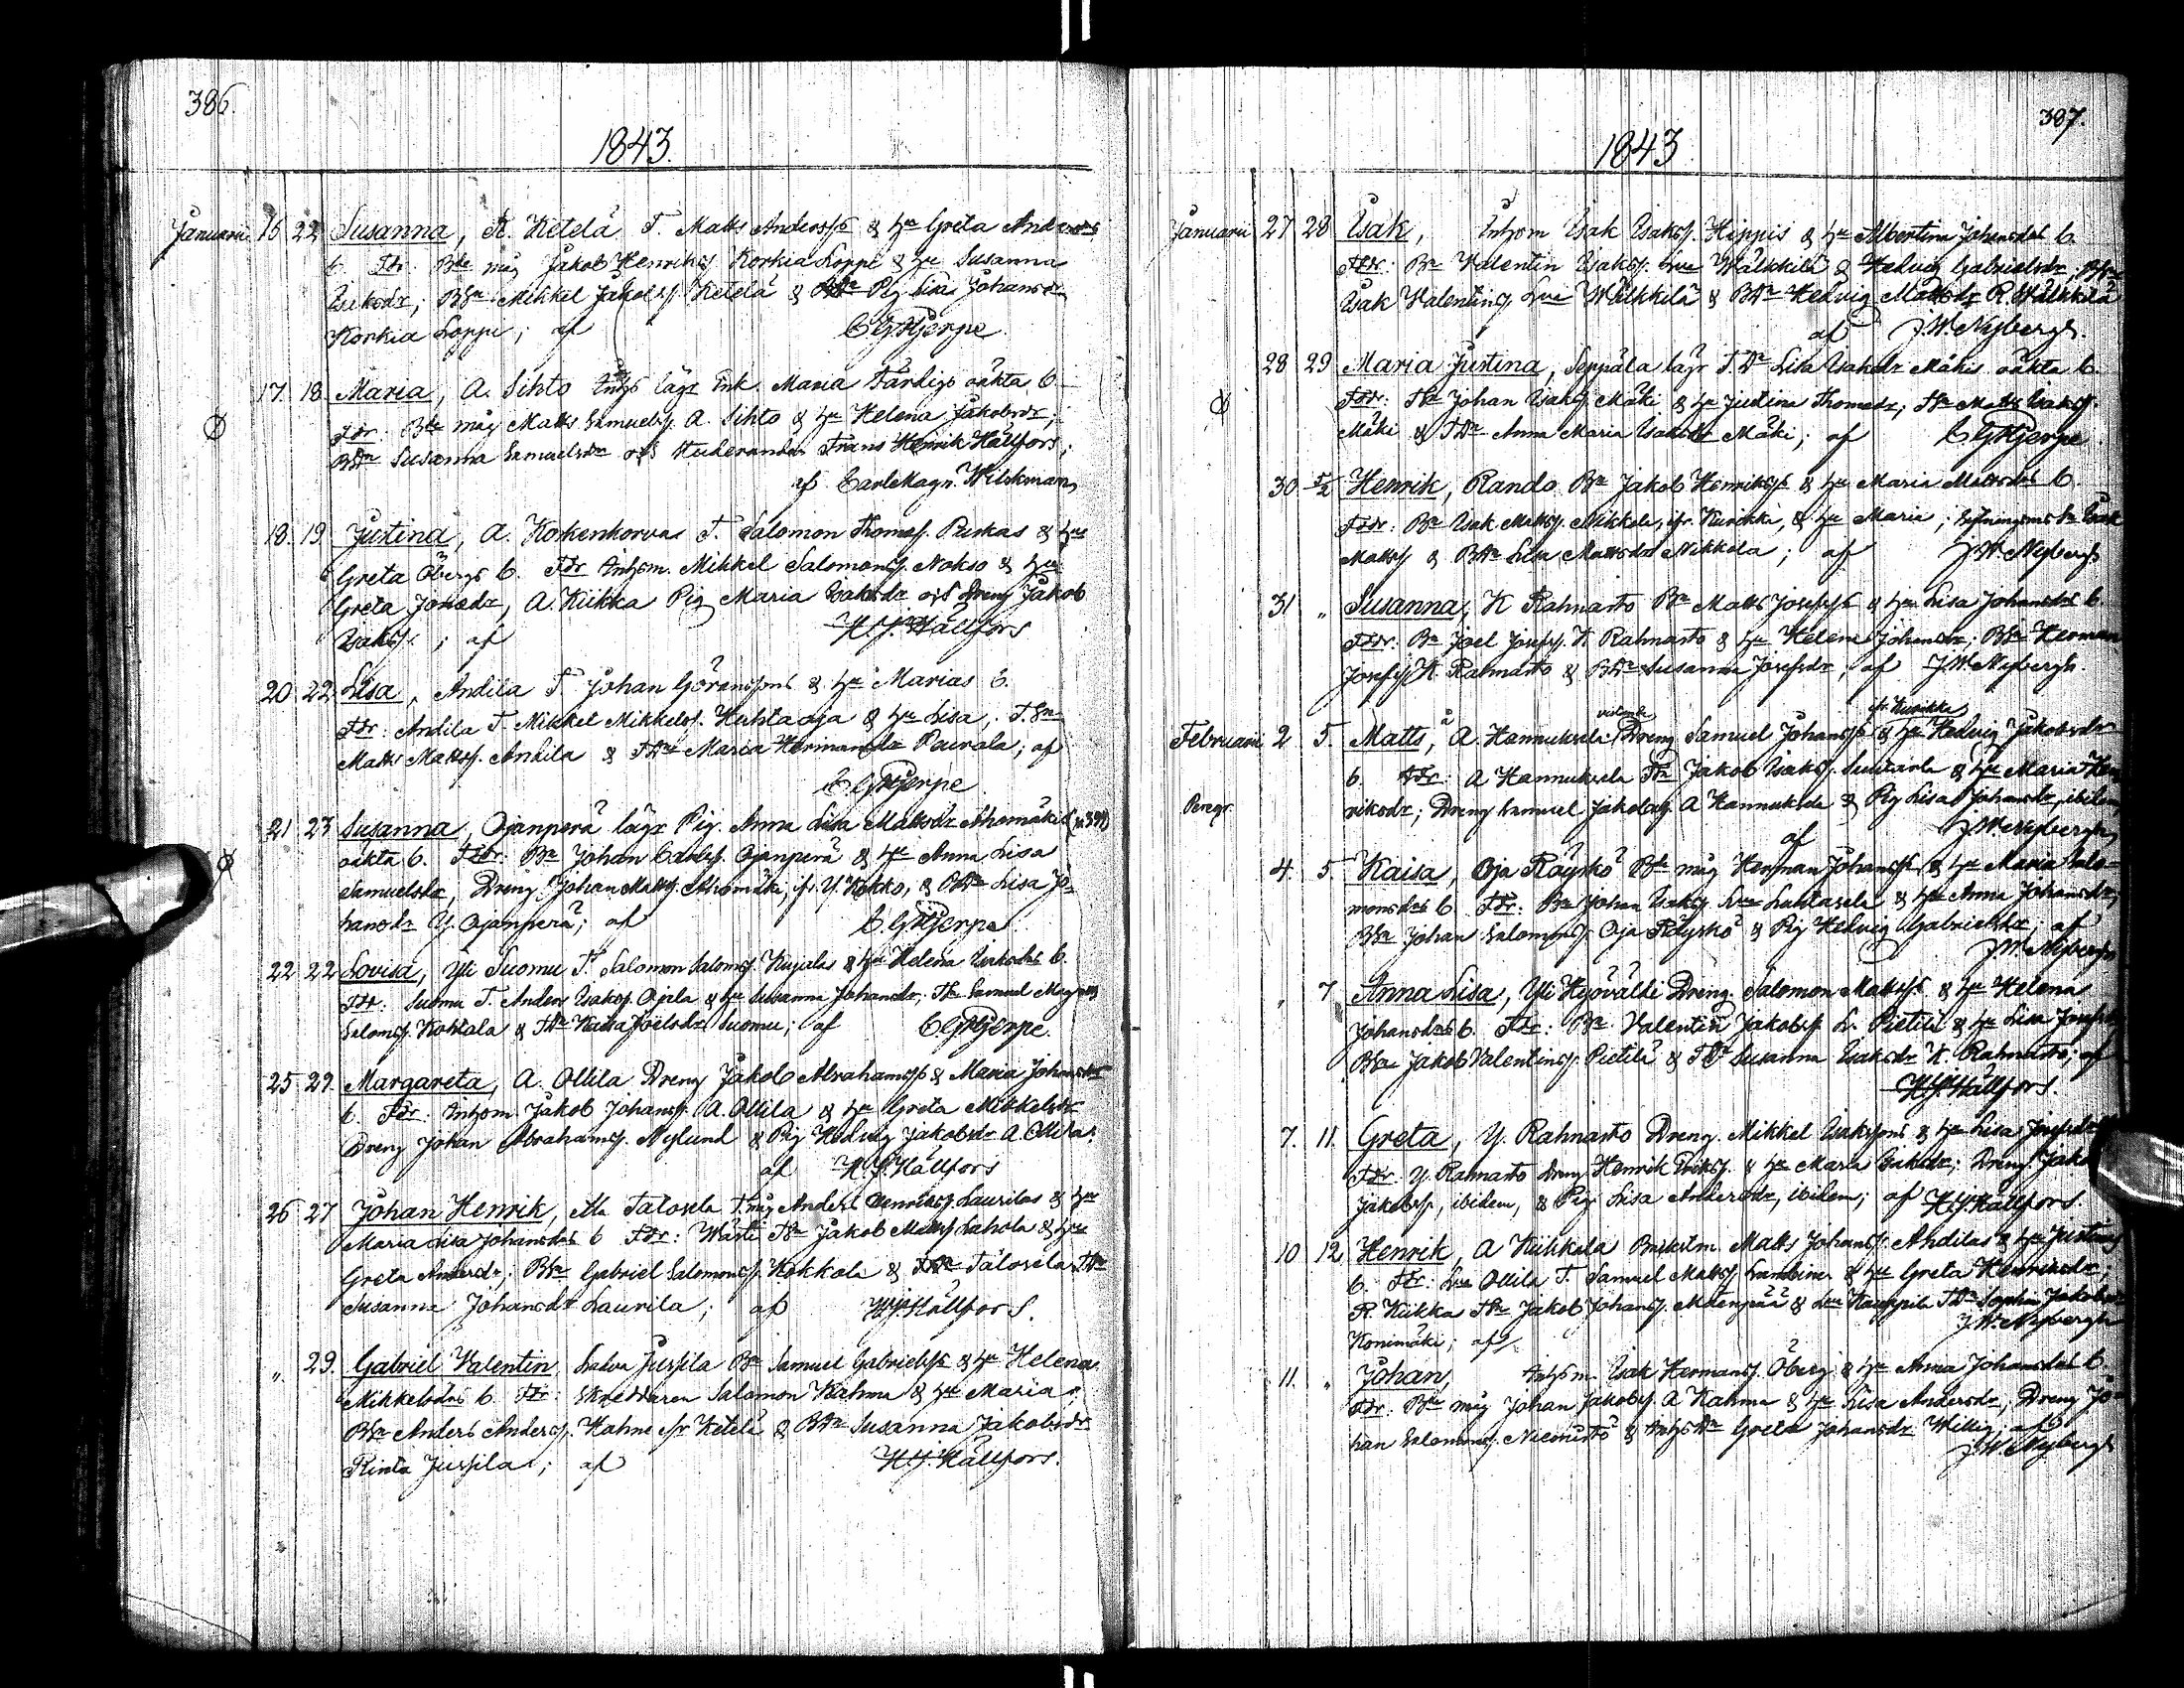 386.
1843.
Januarii 16 22 Susanna, R. Ketelä T. Matts Anderss's & h:u Greta Anders
b. Fdr: B:de måg Jakob Henrikss. Korkia Loppi & h:u Susanna
Isaksdr; BS:n Mikkel Jakobss. Ketelä & Pig Lisa Johansdr
Korkia Loppi; af C G Hjerpe
17. 18. Maria, A. Sihto Inhys lägr Enk. Maria Färdigs oäkta b.
Fdr: B:de måg Matts Samuelss. A. Sihto & h:u Helena Jakobsdr;
BD:r Susanna Samuelsdr och Studeranden Frans Henrik Hällfors;
af Carl Magn. Wilskman
18. 19 Justina, A. Korkenkorvas T. Salomon Thomass. Ruskas & h:us
Greta Öbergs b. Fdr Inhysm. Mikkel Salomonss. Nokso & h:u
Greta Jonaedr, A. Kiikka Pig Maria Isaksdr och Dreng Jakob
Isakss.; af H. J. Hällfors
20 22 Lisa, Andila T. Johan Göranssons & h:u Marias b.
Fdr: Andila T. Mikkel Mikkelss. Huhtaoja & h:u Lisa, T.S:n
Matts Mattss. Andila & TD:r Maria Hermansdr Paurala; af
C G Hjerpe
21 23 Susanna, Ojanperä lägr Pig. Anna Lisa Mattsdr Ahomäkis
oäkta b. Fdr: B:n Johan Carlss. Ojanperä & h:u Anna Lisa
Samuelsdr, Dreng Johan Mattss. Ahomäki, ifr. Y. Kokko, & BD:r Lisa Jo-
hansdr Y. Ojanperä; af C. G Hjerpe
22 22 Lovisa, Yli Suomu T. Salomon Saloms. Kujalas & h:u Helena Eriksdrs b.
Fdr: Suomu T. Anders Isakss. Ojala & h:u Susanna Johansdr, TS:n Samuel Magnus
Saloms. Kohtala & TD:r Kaisa Joelsdr Suomu; af C. G Hjerpe.
25 29. Margareta, A. Ollila Dreng Jakob Abrahamss's & Maria Johansdrs
b. Fdr: Inhysm. Jakob Johanss. A. Ollila & h:u Greta Mikkelsdr
Dreng Johan Abrahamss. Nylund & Pig Hedvig Jakobsdr A. Ollila;
af H. J. Hällfors
26 27 Johan Henrik, Ala Talosela T. måg Anders Henrikss. Laurilas & h:us
Maria Lisa Johansdrs b. Fdr: Wästi TS:n Jakob Mattss. Lahola & h:u
Greta Andersdr; BS:n Gabriel Salomonss. Kokkola & Talosela TD:r
Susanna Johansdr Laurila; af H. J. Hällfors.
" 29. Gabriel Valentin, Latva Jussila B:n Samuel Gabrielss's & h:u Helena
Mikkelsdrs b. Fdr: Skreddaren Salomon Kahma & h:u Maria,
BS:n Anders Anderss. Hahne ifr Ketelä & BD:r Susanna Jakobsdr
Rinta Jussila; af H. J. Hällfors.
387.
1843
Januarii 27 28 Isak, Inhysm Isak Isakss. Hippis & h:u Albertina Johansdrs b.
Fdr: B:n Valentin Isakss. Wälkkilä & Hedvig Gabrielsdr; BS:n
Isak Valentinss. Wälkkilä & BD:r Hedvig Mattsdr R. Wälkkilä
af J. W. Nybergh.
28 29 Maria Justina, Seppäla lägr T.D:r Lisa Isaksdr Mäkis oäkta b.
Fdr: TS:n Johan Isakss. Mäki & h:u Justina Thomasdr; TS:n Matts Isakss.
Mäki & TD:r Anna Maria Isaksdr Mäki; af C G Hjerpe.
30 5/2 Henrik, Rando B:n Jakob Henrikss's & h:u Maria Mattsdrs b.
Fdr: B:n Isak Mattss. Nikkola, ifr. Kurikka, & h:u Maria; Isak
Mattss & BD:r Lisa Mattsdr Nikkola; af J. W. Nybergh
31 " Susanna, K Rahnasto B:n Matts Josefss's & h:u Lisa Johansdrs b.
Fdr: B:n Joel Josefss. K. Rahnasto & h:u Helena Johansdr; BS:n Herman
Josefss K. Rahnasto & BD:r Susanna Josefsdr; af J. W. Nybergh
Februarii 2 5. Matts, A. Hannuksela vistande Dreng Samuel Johanss's ifr Kurikka & h:u Hedvig Jakobsdr
b. Fdr: A Hannuksela TS:n Jakob Isakss. & h:u Maria Hen-
Peregr. riksdr; Dreng Samuel Jakobss. A Hannuksela & Pig Lisa Johansdr, ibidem
af J. W. Nybergh
4. 5. Kaisa, Oja Räyskö B:de måg Herman Johanss's & h:u Maria Salo-
monsdrs b. Fdr: B:n Johan Isakss. Luhtasela & h:u Anna Johansdr,
BS:n Johan Salomonss. Oja Räyskö & Pig Hedvig Gabrielsdr; af
J. W. Nybergh
" 7 Anna Lisa, Yli Hyövälti Dreng. Salomon Mattss's & h:u Helena
Johansdrs b. Fdr: B:n Valentin Jakobss L. Pietilä & h:u Lisa Josefsdr
BS:n Jakob Valentinss. Pietilä & TD:r Susanna Isaksdr K. Rahnasto; af
H. J. Hällfors.
7. 11. Greta, Y. Rahnasto Dreng. Mikkel Isakssons & h:u Lisa Josefsdrs
Fdr: Y. Rahnasto Dreng Henrik Erikss. & h:u Maria Isaksdr; Dreng Jakob
Jakobss, ibidem, & Pig Lisa Andersdr, ibidem; af H. J. Hällfors.
10 12 Henrik, A Kiikkala Matts Johanss. Andilas & h:u Justinas
b. Fdr: Ollila T. Samuel Mattss Lambinen & h:u Greta Henriksdr;
R Kiikka TS:n Jakob Johanss. Mäenpää & Kauppila TD:r Sophia Jakobsdr
Konimäki; af J. W. Nybergh
11. " Johan, Inhysm. Isak Hermanss. Öberg & h:u Anna Johansdrs b.
Fdr: B:de måg Johan Jakobss. A Kahma & h:u Lisa Andersdr, Dreng Jo-
han Salomonss. Niemistö & InhysD:r Greta Johansdr Willig; af
J. W. Nybergh